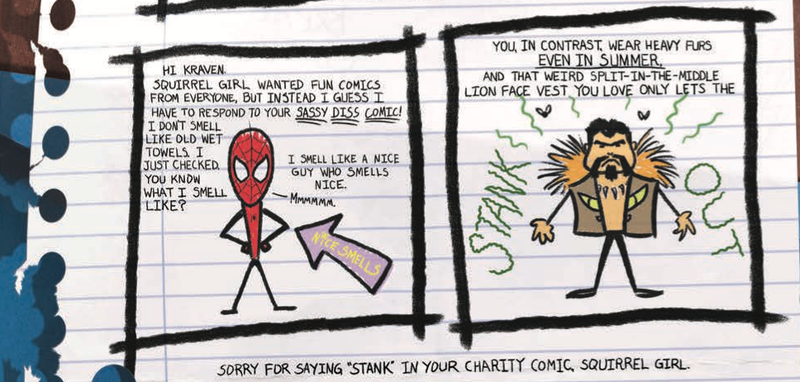 HI KRAVEN.
SQUIRREL GIRL WANTED FUN COMICS
FROM EVERYONE, BUT INSTEAD I GUESS I
HAVE TO RESPOND TO YOUR SASSY DISS COMIC!
I DON'T SMELL
LIKE OLD WET
TOWELS. I
JUST CHECKED.
YOU KNOW
WHAT I SMELL
LIKE?
I SMELL LIKE A NICE
GUY WHO SMELLS
NICE.
MMMMMM.
NICE SMELLS
YOU, IN CONTRAST, WEAR HEAVY FURS
EVEN IN SUMMER,
AND THAT WEIRD SPLIT-IN-THE-MIDDLE
LION FACE VEST YOU LOVE ONLY LETS THE
STANK
OUT
SORRY FOR SAYING "STANK" IN YOUR CHARITY COMIC, SQUIRREL GIRL.